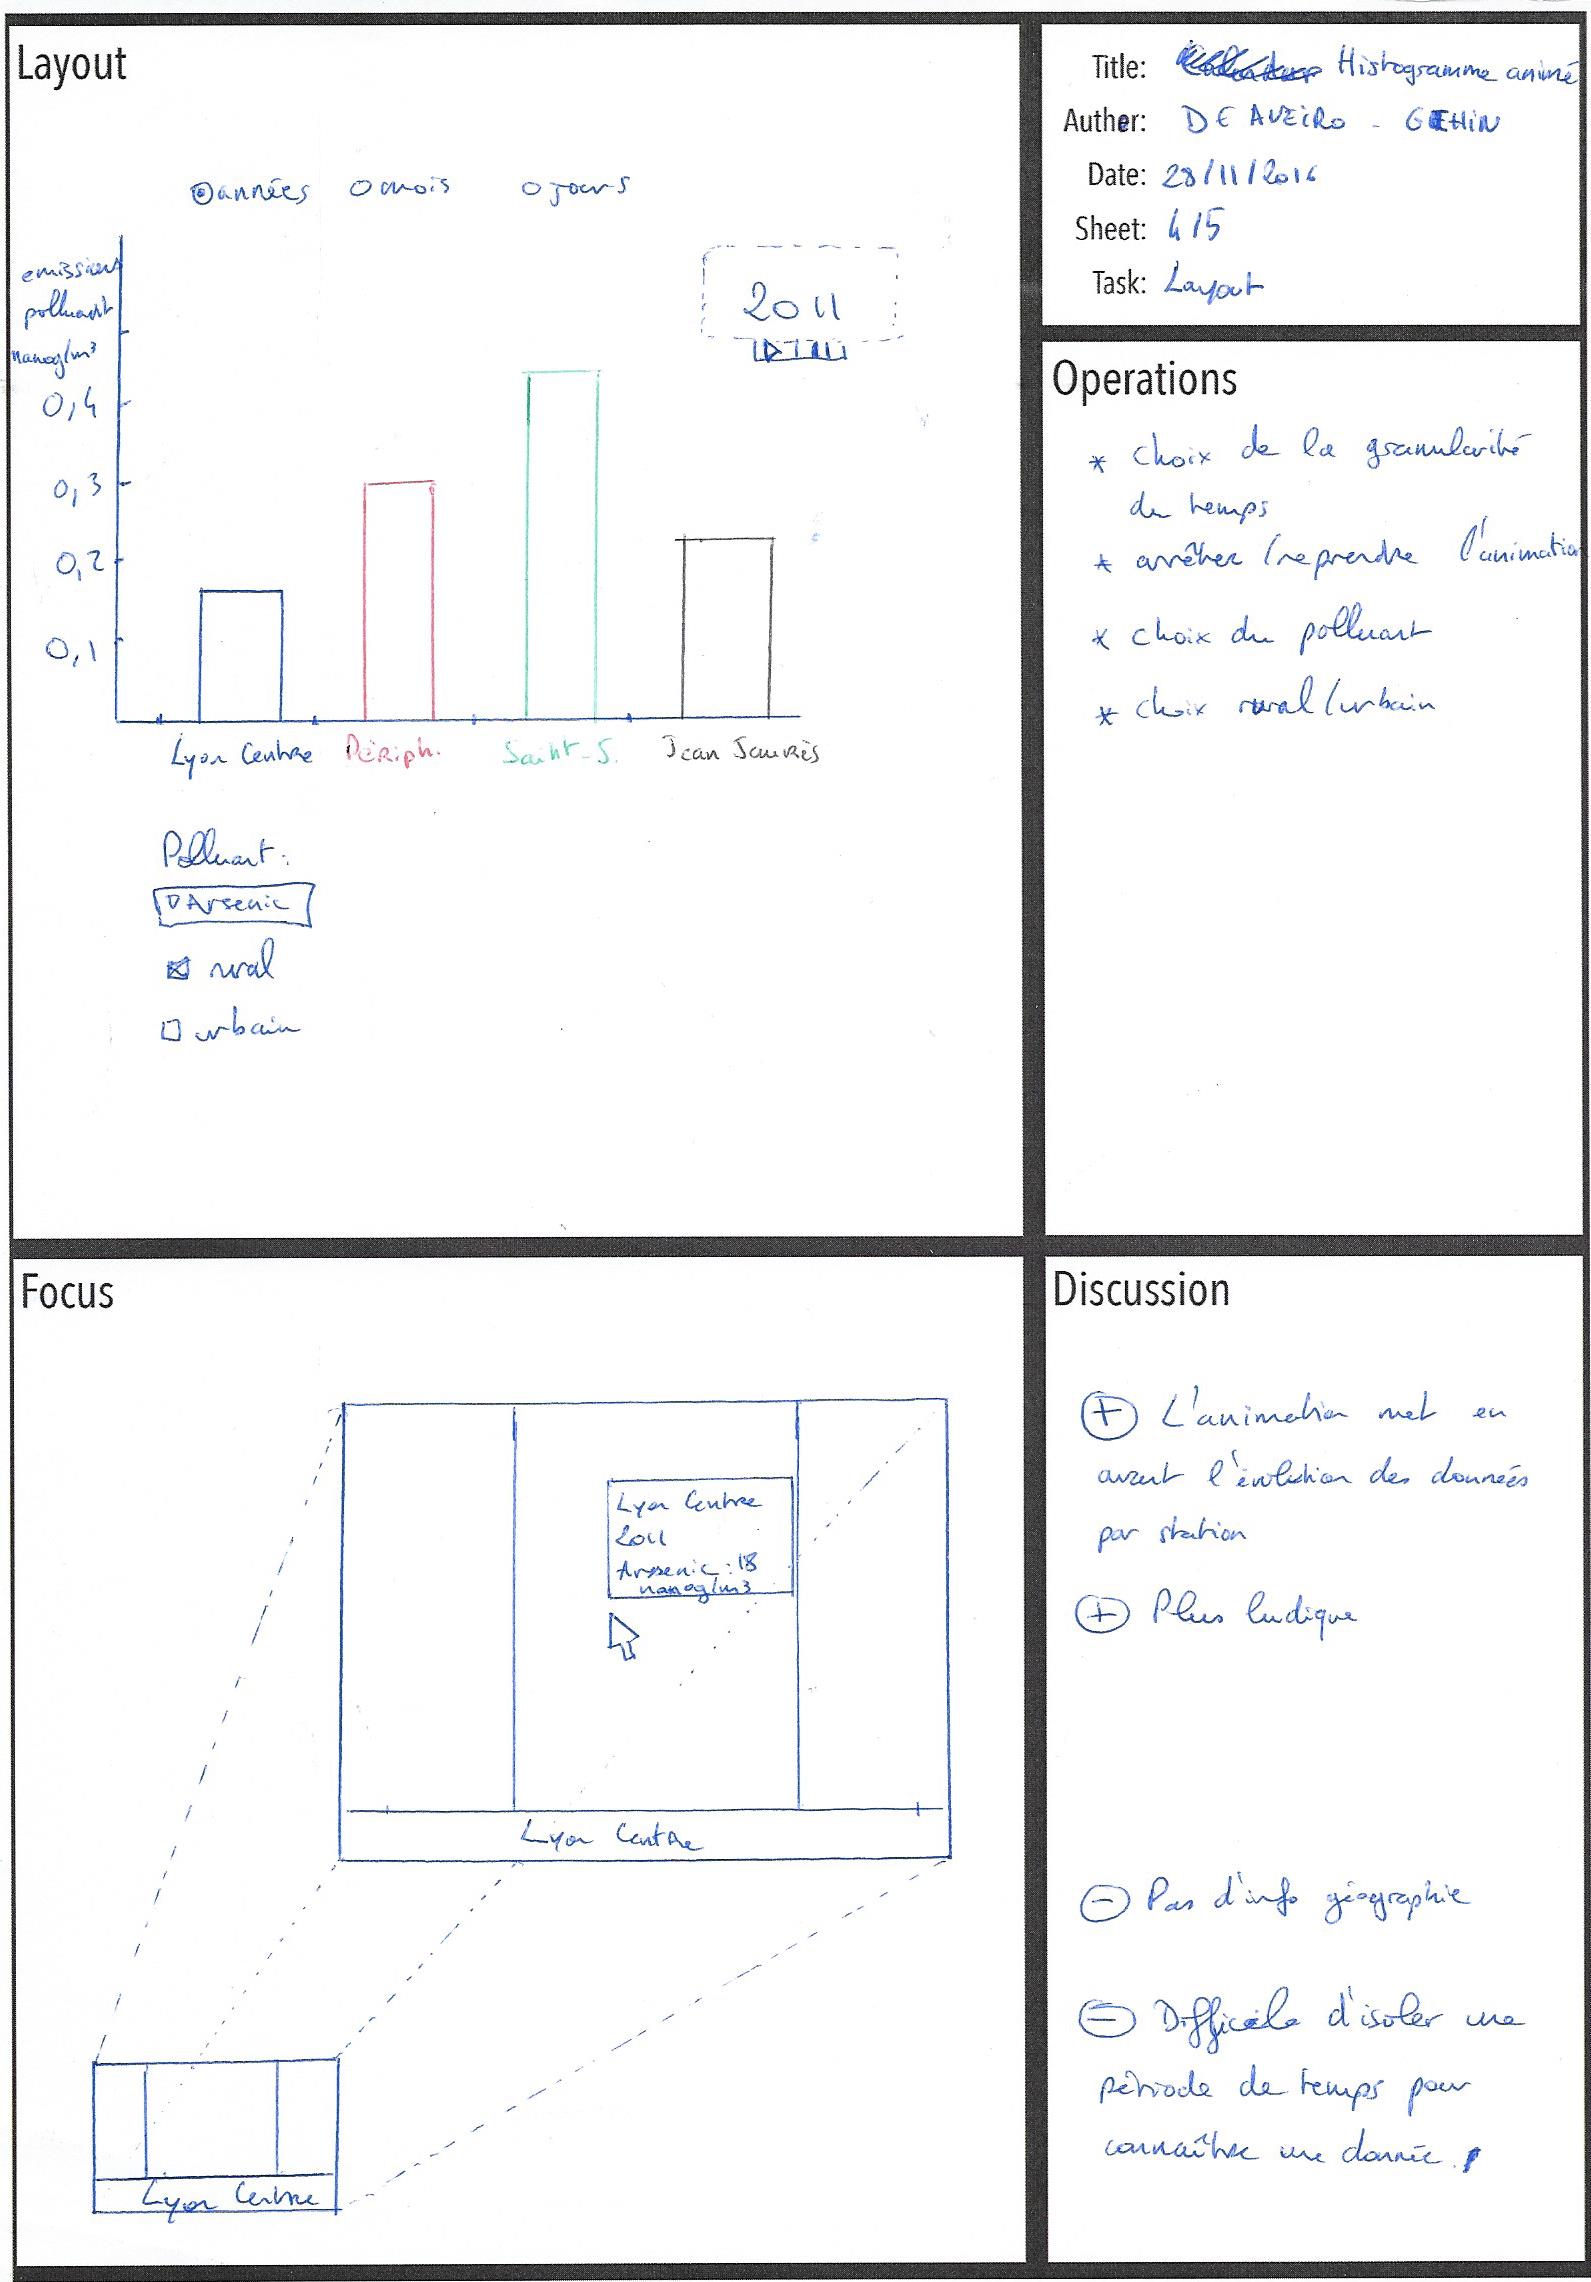 Layout
années mois jours
emissions
polluant
nanog/m³
0,4
0,3
0,2
0,1
2011
Lyon Centre Périph. Saint-J. Jean Jaurès
Polluant :
Arsenic
rural
urbain
Title: Histogramme animé
Auther: DE AVEIRO - GEHIN
Date: 28/11/2016
Sheet: 4/5
Task: Layout
Operations
* choix de la granularité
du temps
* arrêter / reprendre l'animation
* choix du polluant
* choix rural / urbain
Focus
Lyon Centre
2011
Arsenic : 18
nanog/m3
Lyon Centre
Lyon Centre
Discussion
+ L'animation met en
avant l'évolution des données
par station
+ Plus ludique
- Pas d'info géographie
- Difficile d'isoler une
période de temps pour
connaître une donnée.